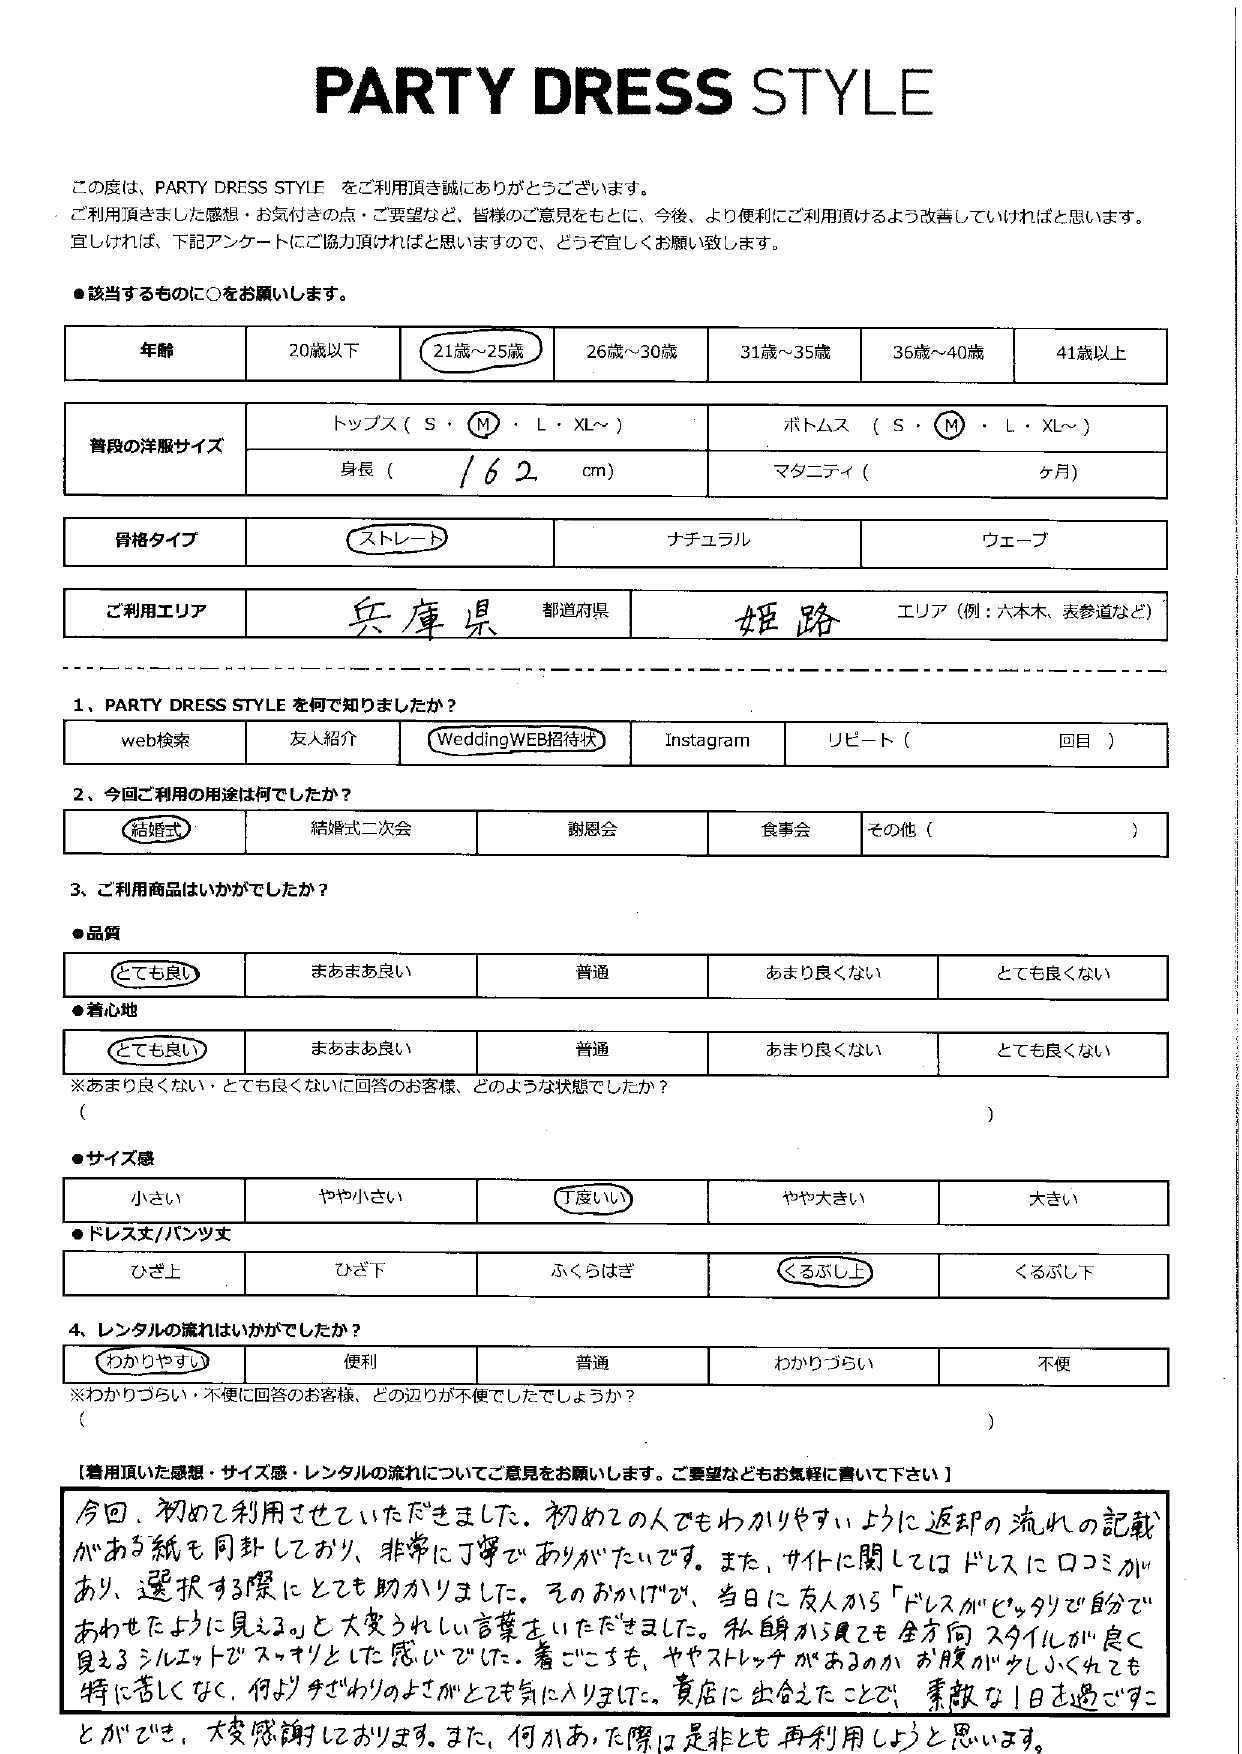 PARTY DRESS STYLE
この度は、PARTY DRESS STYLE　をご利用頂き誠にありがとうございます。
ご利用頂きました感想・お気付きの点・ご要望など、皆様のご意見をもとに、今後、より便利にご利用頂けるよう改善していければと思います。
宜しければ、下記アンケートにご協力頂ければと思いますので、どうぞ宜しくお願い致します。
●該当するものに○をお願いします。
年齢 20歳以下 21歳～25歳 26歳～30歳 31歳～35歳 36歳～40歳 41歳以上
普段の洋服サイズ トップス ( S ・ M ・ L ・ XL～ ) ボトムス ( S ・ M ・ L ・ XL～ )
身長 ( 162 cm) マタニティ ( ヶ月)
骨格タイプ ストレート ナチュラル ウェーブ
ご利用エリア 兵庫県 都道府県 姫路 エリア（例：六本木、表参道など）
1、PARTY DRESS STYLE を何で知りましたか？
web検索 友人紹介 WeddingWEB招待状 Instagram リピート ( 回目 )
2、今回ご利用の用途は何でしたか？
結婚式 結婚式二次会 謝恩会 食事会 その他 ( )
3、ご利用商品はいかがでしたか？
●品質
とても良い まあまあ良い 普通 あまり良くない とても良くない
●着心地
とても良い まあまあ良い 普通 あまり良くない とても良くない
※あまり良くない・とても良くないに回答のお客様、どのような状態でしたか？
( )
●サイズ感
小さい やや小さい 丁度いい やや大きい 大きい
●ドレス丈/パンツ丈
ひざ上 ひざ下 ふくらはぎ くるぶし上 くるぶし下
4、レンタルの流れはいかがでしたか？
わかりやすい 便利 普通 わかりづらい 不便
※わかりづらい・不便に回答のお客様、どの辺りが不便でしたでしょうか？
( )
【着用頂いた感想・サイズ感・レンタルの流れについてご意見をお願いします。ご要望などもお気軽に書いて下さい】
今回、初めて利用させていただきました。初めての人でもわかりやすいように返却の流れの記載
がある紙も同封しており、非常に丁寧でありがたいです。また、サイトに関してはドレスに口コミが
あり、選択する際にとても助かりました。そのおかげで、当日に友人から「ドレスがピッタリで自分で
あわせたように見える。」と大変うれしい言葉をいただきました。私自身から見ても全方向スタイルが良く
見えるシルエットでスッキリとした感じでした。着ごこちも、ややストレッチがあるのかお腹が少しふくれても
特に苦しくなく、何より手ざわりのよさがとても気に入りました。貴店に出会えたことで、素敵な1日を過ごすこ
とができ、大変感謝しております。また、何かあった際は是非とも再利用しようと思います。